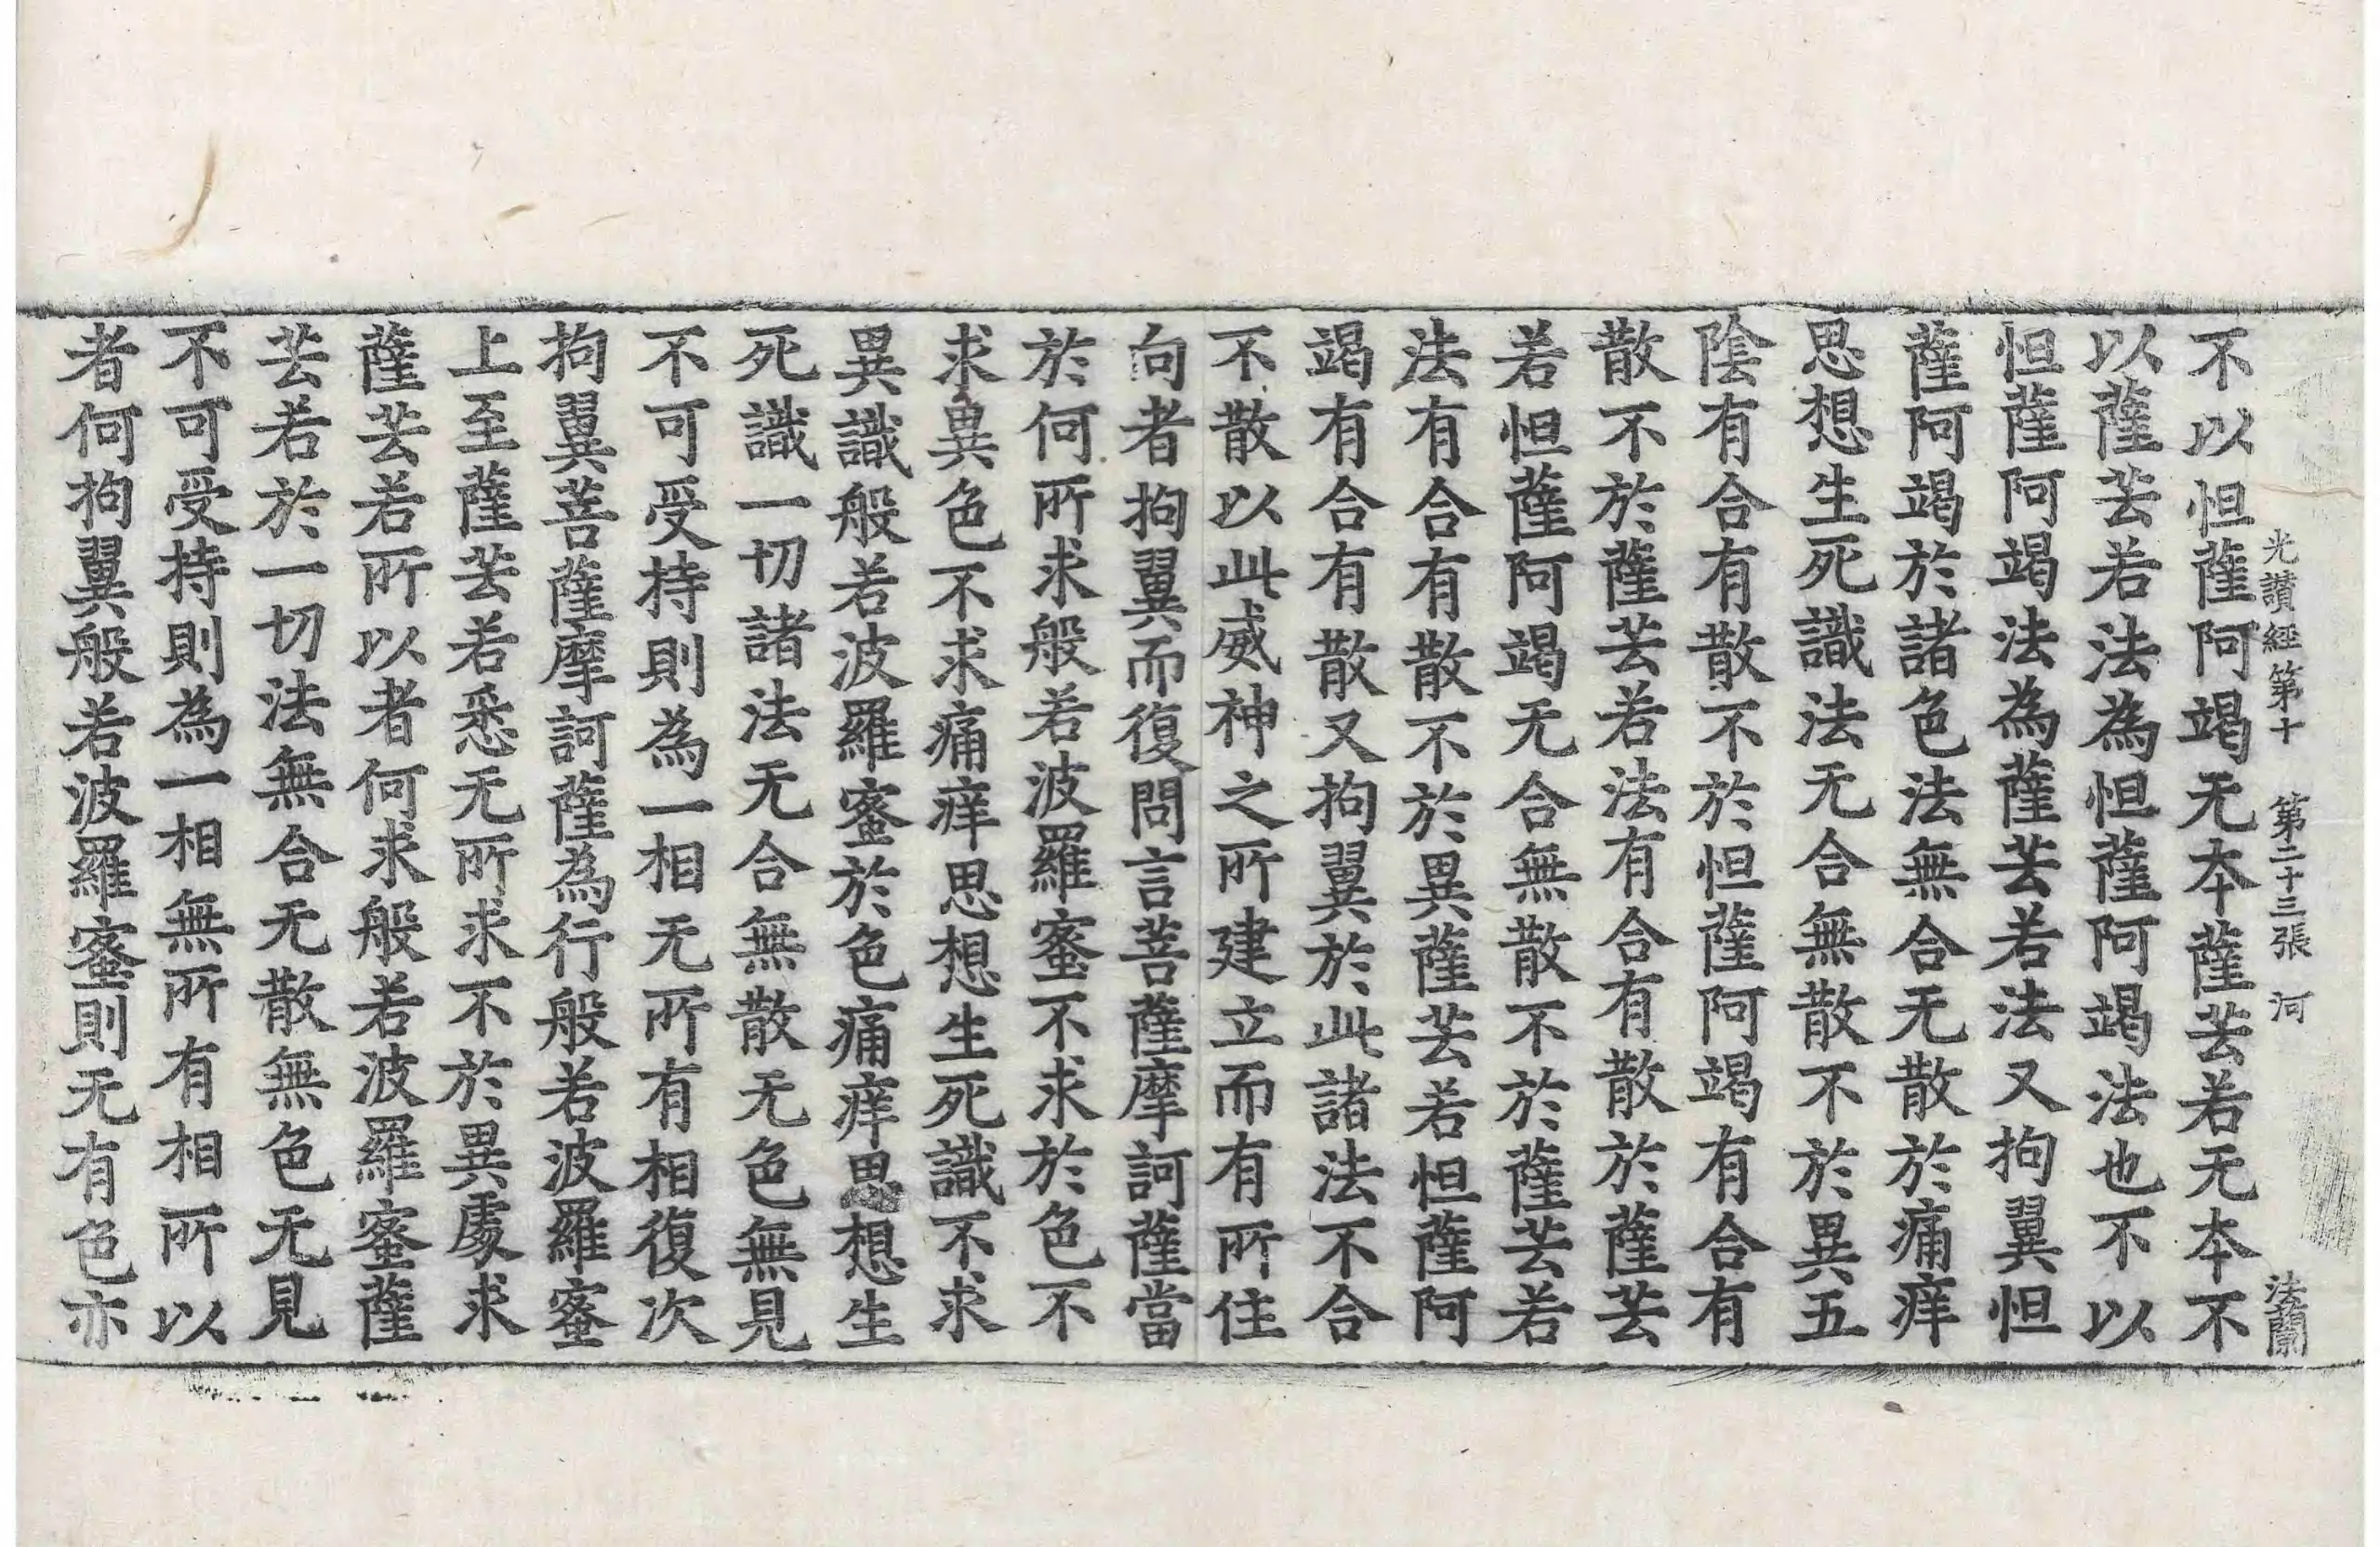 光讃經第十　第二十三張　河　法蘭
不以怛薩阿竭无本薩芸若无本不
以薩芸若法為怛薩阿竭法也不以
怛薩阿竭法為薩芸若法又拘翼怛
薩阿竭於諸色法無合无散於痛痒
思想生死識法无合無散不於異五
陰有合有散不於怛薩阿竭有合有
散不於薩芸若法有合有散於薩芸
若怛薩阿竭无合無散不於薩芸若
法有合有散不於異薩芸若怛薩阿
竭有合有散又拘翼於此諸法不合
不散以此威神之所建立而有所住
向者拘翼而復問言菩薩摩訶薩當
於何所求般若波羅蜜不求於色不
求異色不求痛痒思想生死識不求
異識般若波羅蜜於色痛痒思想生
死識一切諸法无合無散无色無見
不可受持則為一相无所有相復次
拘翼菩薩摩訶薩為行般若波羅蜜
上至薩芸若悉无所求不於異處求
薩芸若所以者何求般若波羅蜜薩
芸若於一切法無合无散無色无見
不可受持則為一相無所有相所以
者何拘翼般若波羅蜜則无有色亦